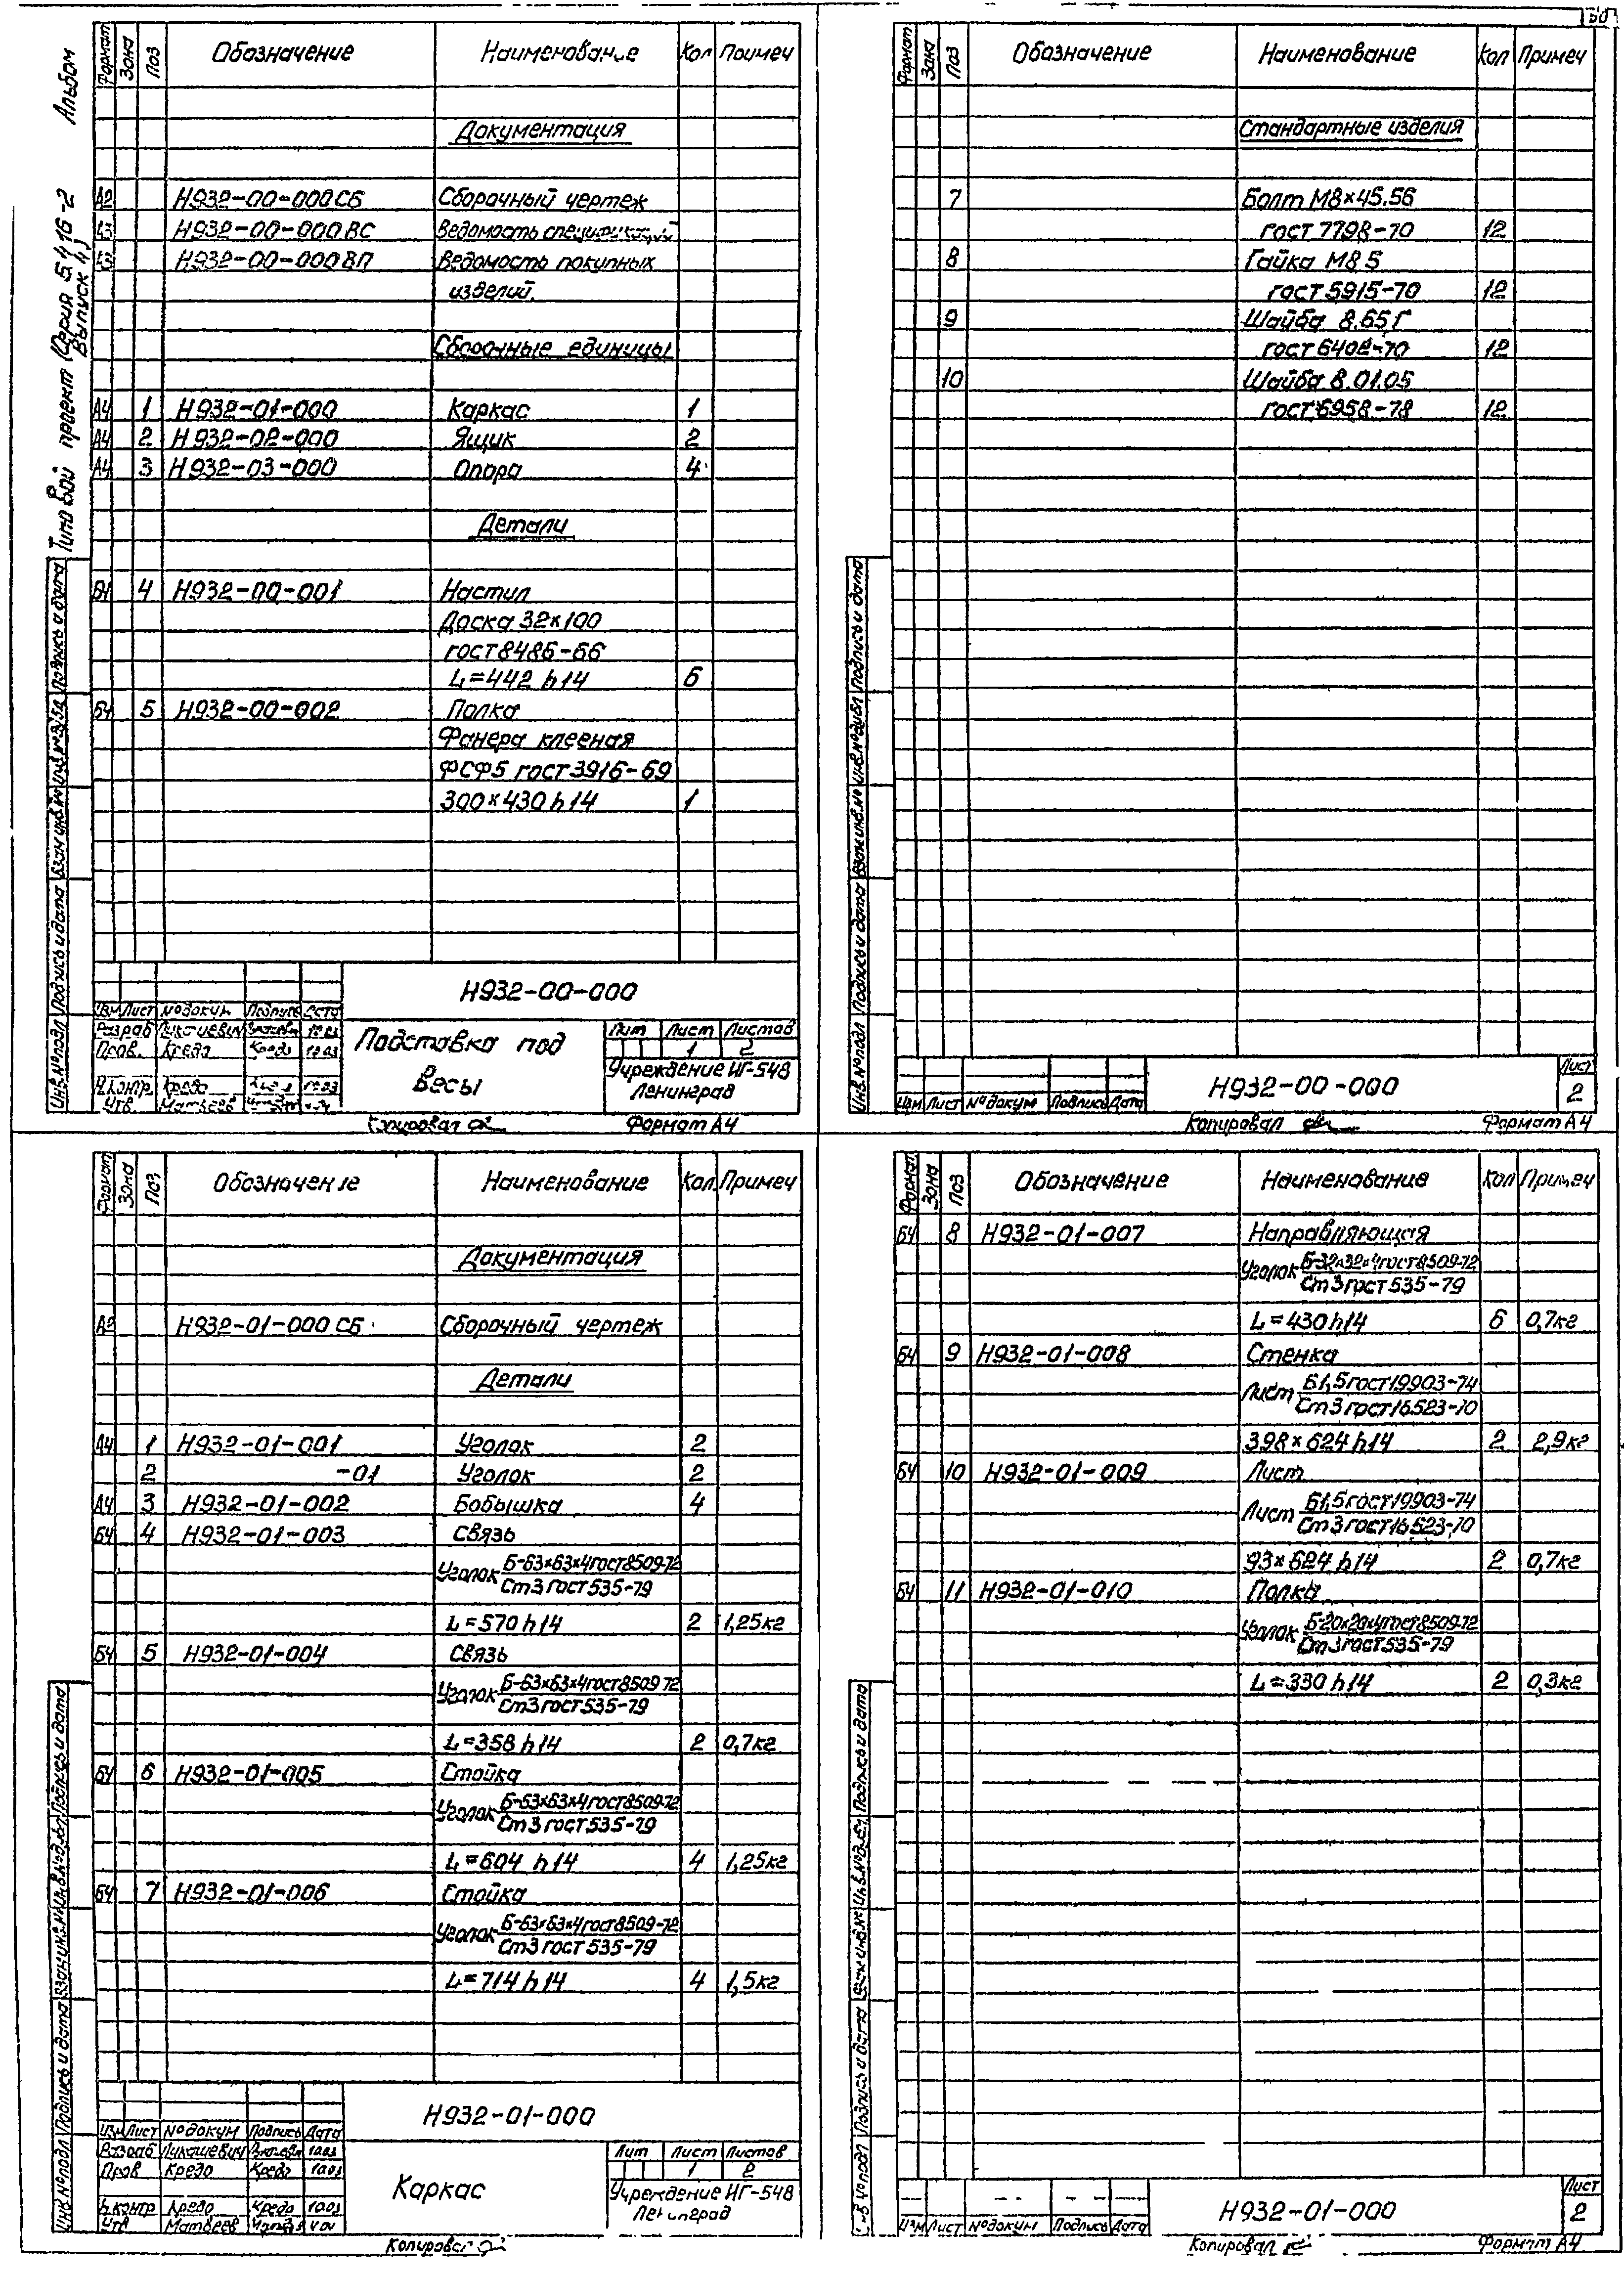 50
Альбом
Типовой проект (Серия 5.416-2 Выпуск 4)
Формат Зона Поз Обозначение Наименование Кол Примеч
Документация
А2 Н932-00-000СБ Сборочный чертеж
А3 Н932-00-000ВС Ведомость спецификаций
А3 Н932-00-000ВП Ведомость покупных
изделий.
Сборочные единицы
А4 1 Н932-01-000 Каркас 1
А4 2 Н932-02-000 Ящик 2
А4 3 Н932-03-000 Опора 4
Детали
Б4 4 Н932-00-001 Настил
Доска 32×100
гост 8486-66
L=442 h14 6
Б4 5 Н932-00-002 Полка
Фанера клееная
ФСФ5 гост 3916-69
300×430 h14 1
Инв.№подл Подпись и дата Взам инв.№ Инв.№дубл Подпись и дата
Н932-00-000
Изм Лист №докум Подпись Дата
Разраб Лукашевич 10.03
Пров. Кредо Кредо 10.03
Н.контр Кредо 10.03
Утв Матвеев
Подставка под
весы
Лит Лист Листов
1 2
Учреждение ИГ-548
Ленинград
Копировал Формат А4
Формат Зона Поз Обозначение Наименование Кол Примеч
Стандартные изделия
7 Болт М8×45.56
гост 7798-70 12
8 Гайка М8 5
гост 5915-70 12
9 Шайба 8.65Г
гост 6402-70 12
10 Шайба 8.01.05
гост 6958-78 12
Инв.№подл Подпись и дата Взам инв.№ Инв.№дубл Подпись и дата
Изм Лист №докум Подпись Дата
Н932-00-000
Лист
2
Копировал Формат А4
Формат Зона Поз Обозначение Наименование Кол Примеч
Документация
А2 Н932-01-000 СБ Сборочный чертеж
Детали
А4 1 Н932-01-001 Уголок 2
2 -01 Уголок 2
А4 3 Н932-01-002 Бобышка 4
Б4 4 Н932-01-003 Связь
Уголок Б-63×63×4 гост 8509-72
Ст3 гост 535-79
L=570 h14 2 1,25кг
Б4 5 Н932-01-004 Связь
Уголок Б-63×63×4 гост 8509-72
Ст3 гост 535-79
L=358 h14 2 0,7кг
Б4 6 Н932-01-005 Стойка
Уголок Б-63×63×4 гост 8509-72
Ст3 гост 535-79
L=604 h14 4 1,25кг
Б4 7 Н932-01-006 Стойка
Уголок Б-63×63×4 гост 8509-72
Ст3 гост 535-79
L=714 h14 4 1,5кг
Инв.№подл Подпись и дата Взам инв.№ Инв.№дубл Подпись и дата
Н932-01-000
Изм Лист №докум Подпись Дата
Разраб Лукашевич 10.03
Пров Кредо Кредо 10.03
Н.контр Кредо Кредо 10.03
Утв Матвеев
Каркас
Лит Лист Листов
1 2
Учреждение ИГ-548
Ленинград
Копировал
Формат Зона Поз Обозначение Наименование Кол Примеч
Б4 8 Н932-01-007 Направляющая
Уголок Б-32×32×4 гост 8509-72
Ст3 гост 535-79
L=430 h14 6 0,7кг
Б4 9 Н932-01-008 Стенка
Лист Б1,5 гост 19903-74
Ст3 гост 16523-70
398×624 h14 2 2,9кг
Б4 10 Н932-01-009 Лист
Лист Б1,5 гост 19903-74
Ст3 гост 16523-70
93×624 h14 2 0,7кг
Б4 11 Н932-01-010 Полка
Уголок Б-20×20×4 гост 8509-72
Ст3 гост 535-79
L=330 h14 2 0,3кг
Подпись и дата Взам инв.№ Подпись и дата
Изм Лист №докум Подпись Дата
Н932-01-000
Лист
2
Копировал Формат А4